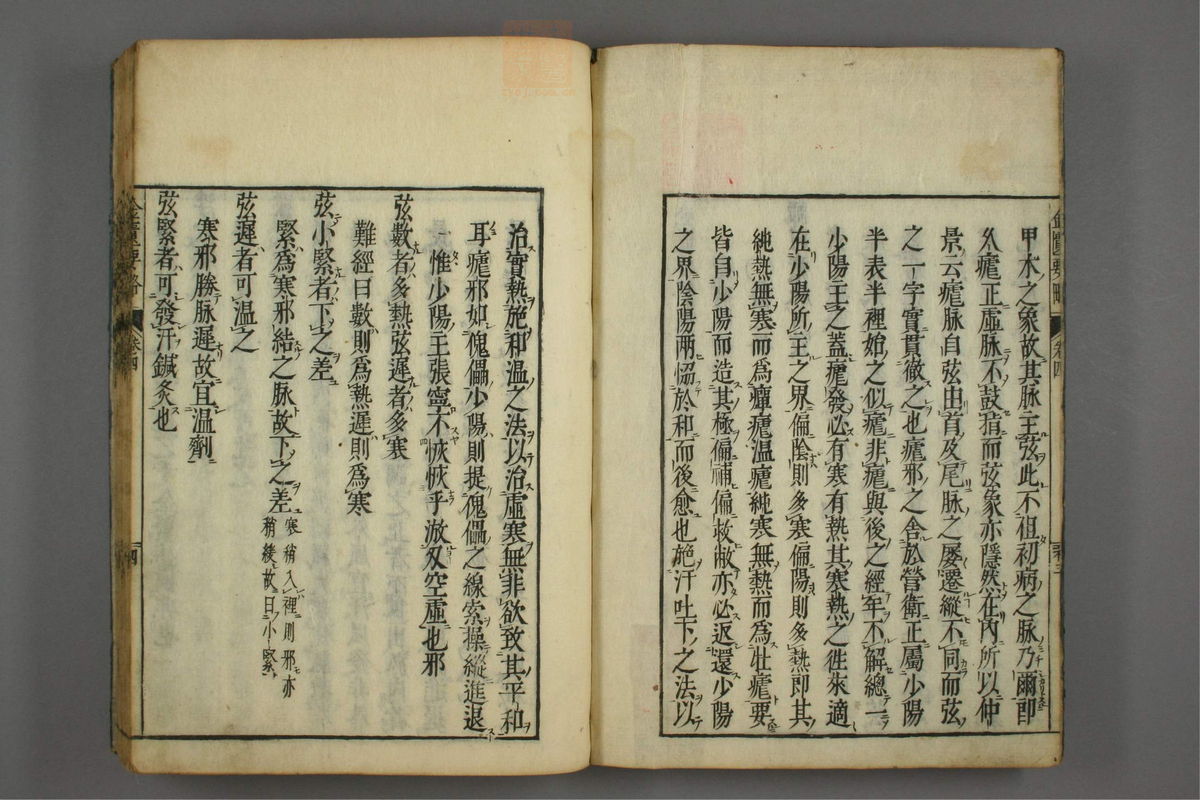 甲木之象故其脉主弦此不祖初病之脉乃爾即
久瘧正虛脉不鼓指而弦象亦隱然在內所以仲
景云瘧脉自弦由首及尾脉之屡遷縱不同而弦
之一字實貫徹之也瘧邪之舍於營衛正屬少陽
半表半裡始之似瘧非瘧與後之經年不解總一
少陽主之蓋瘧發必有寒有熱其寒熱之徃來適
在少陽所主之界偏陰則多寒偏陽則多熱即其
純熱無寒而爲癉瘧温瘧純寒無熱而爲牡瘧要
皆自少陽而造其極偏補偏救敝亦必返還少陽
之界陰陽兩恊於和而後愈也施汗吐下之法以
金匱要略 卷四
治實熱施和温之法以治虛寒無非欲致其平和
耳瘧邪如傀儡少陽則提傀儡之線索操縱進退
一惟少陽主張寧不恢恢乎游刄空虛也邪
弦數者多熱弦遲者多寒
難經曰數則爲熱遲則爲寒
弦小緊者下之差
緊爲寒邪結之脉故下之差寒稍入裡則邪亦稍緩故曰小緊
弦遲者可温之
寒邪勝脉遲故宜温劑
弦緊者可發汗鍼灸也
金匱要略 卷四 四